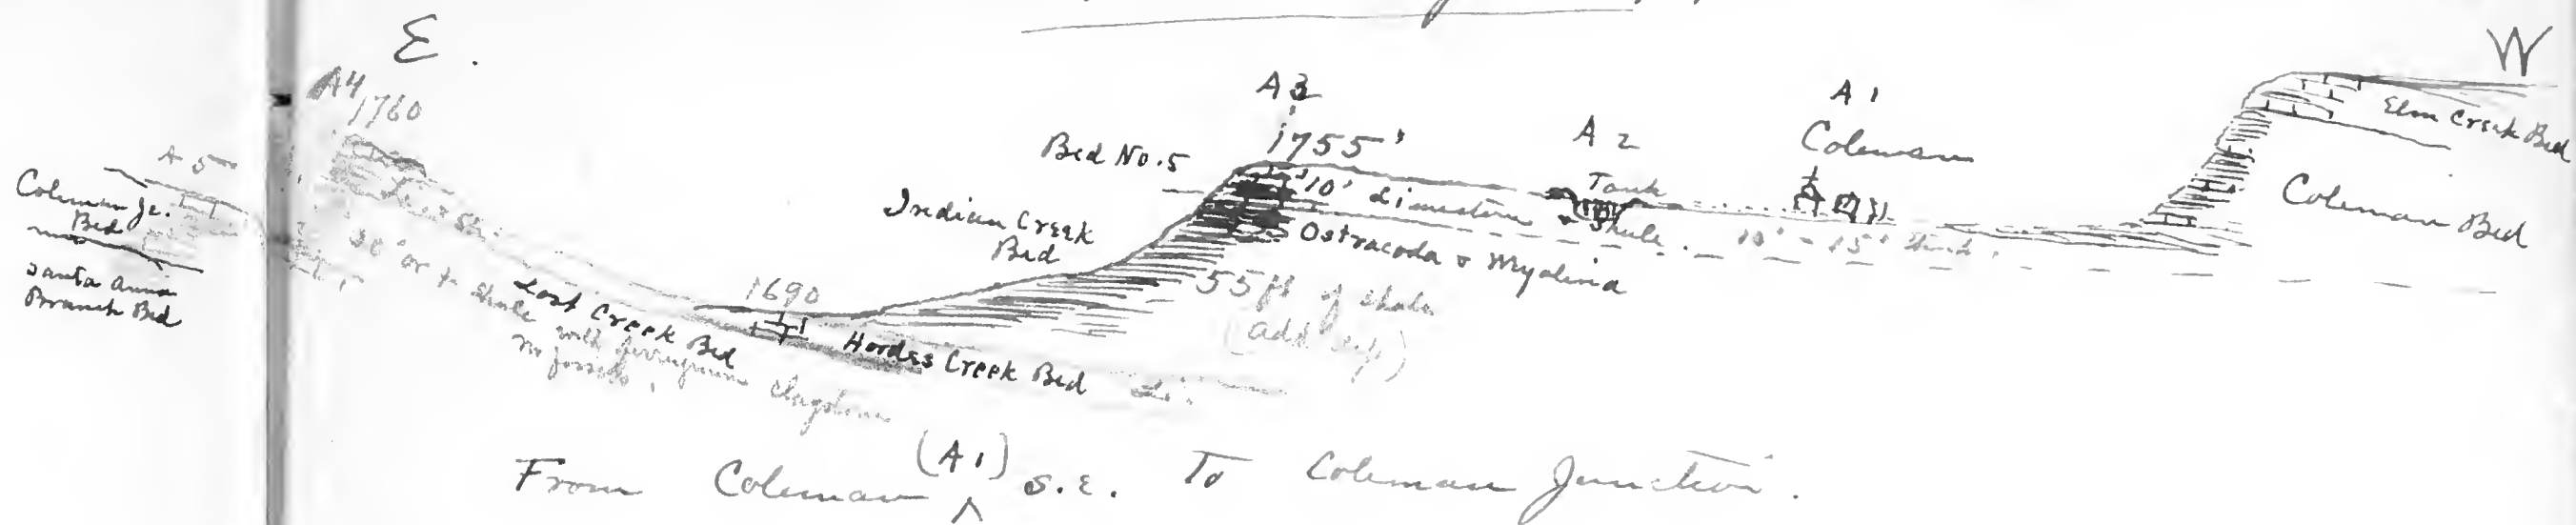 E.
W
A4
1760
A5
Coleman Jc.
Bed
Santa Anna
Branch Bed
30' or + shale
with ferruginous claystone
no fossils.
Lost Creek Bed
1690
Hordes Creek Bed
Indian Creek
Bed
Bed No. 5
A3
1755'
10' Limestone
& Shale. 10' - 15' thick.
Ostracoda & Myalina
55 ft of shale
(add dip)
A2
Tank
A1
Coleman
Elm Creek Bed
Coleman Bed
From Coleman (A1) S.E. To Coleman Junction.